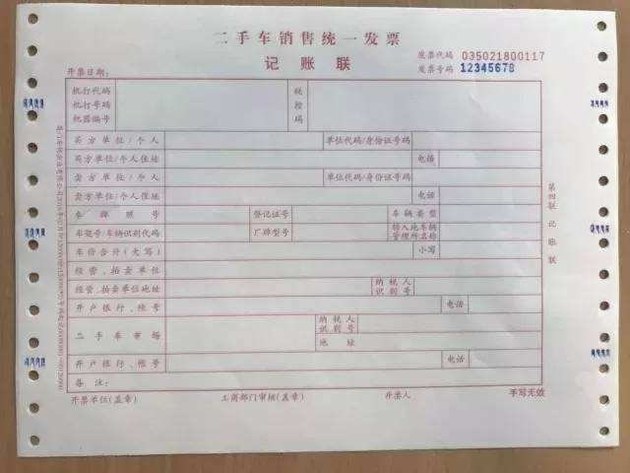 二手车销售统一发票
记账联
发票代码 035021800117
发票号码 12345678
开票日期:
机打代码
机打号码
机器编号
税控码
买方单位/个人 单位代码/身份证号码
买方单位/个人住址 电话
卖方单位/个人 单位代码/身份证号码
卖方单位/个人住址 电话
车牌照号 登记证号 车辆类型
车架号/车辆识别代码 厂牌型号 转入地车辆管理所名称
车价合计(大写) 小写
经营、拍卖单位
经营、拍卖单位地址 纳税人识别号
开户银行、账号 电话
二手车市场 纳税人识别号
地址
开户银行、账号 电话
备注:
开票单位(盖章) 工商部门审核(盖章) 开票人 手写无效
第四联 记账联